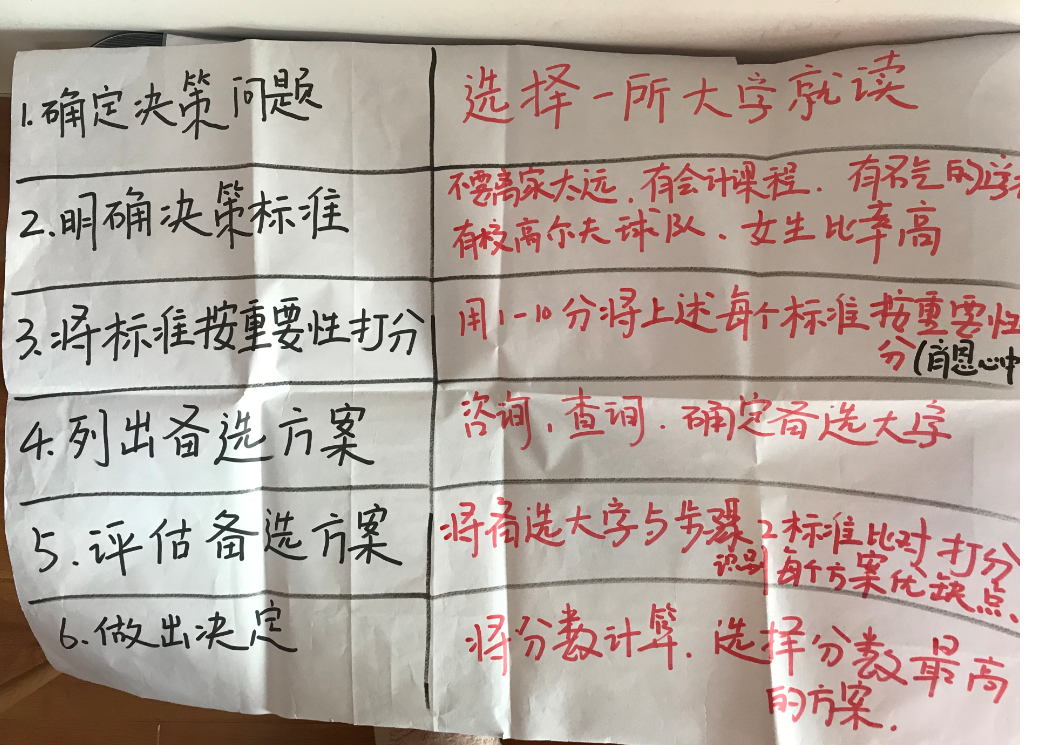 1.确定决策问题
选择一所大字就读
2.明确决策标准
不要离家太远、有会计课程、有名气的学
有校高尔夫球队、女生比率高
3.将标准按重要性打分
用1-10分将上述每个标准按重要性
分(肖恩心中
4.列出备选方案
咨询、查询、确定备选大字
5.评估备选方案
将备选大字与步骤2标准比对打分
识别每个方案优缺点.
6.做出决定
将分数计算.选择分数最高
的方案.